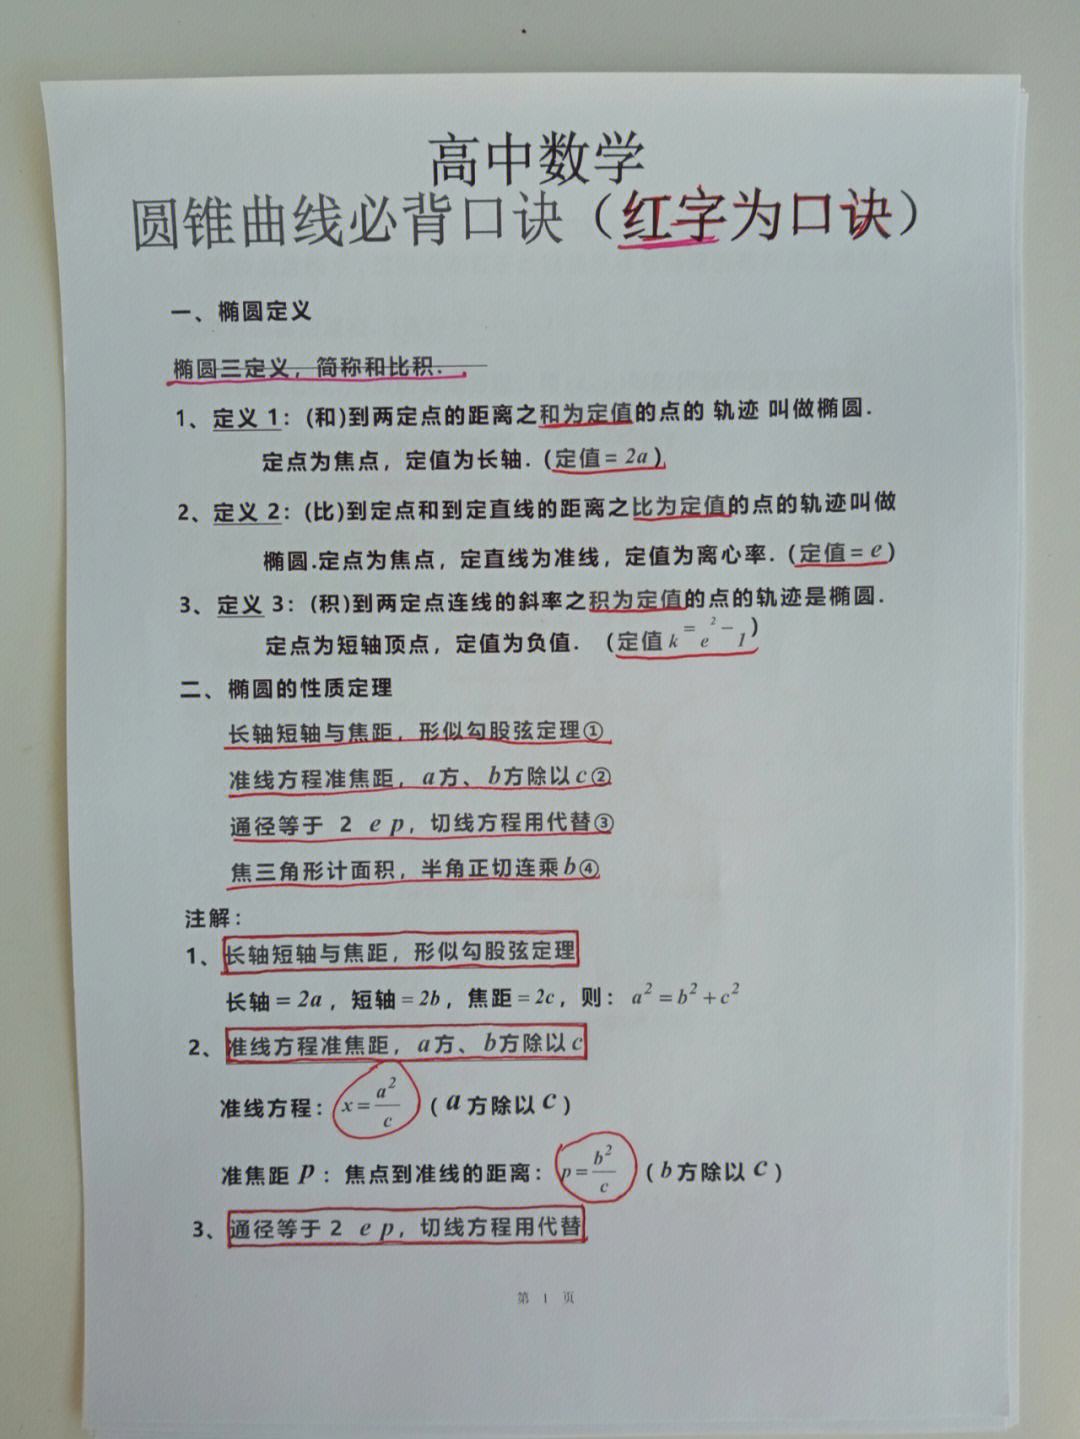 高中数学
圆锥曲线必背口诀（红字为口诀）
一、椭圆定义
椭圆三定义，简称和比积.
1、定义 1：(和)到两定点的距离之和为定值的点的 轨迹 叫做椭圆.
定点为焦点，定值为长轴.（定值= 2a）
2、定义 2：(比)到定点和到定直线的距离之比为定值的点的轨迹叫做
椭圆.定点为焦点，定直线为准线，定值为离心率.（定值= e）
3、定义 3：(积)到两定点连线的斜率之积为定值的点的轨迹是椭圆.
定点为短轴顶点，定值为负值. （定值 k = e² − 1）
二、椭圆的性质定理
长轴短轴与焦距，形似勾股弦定理①
准线方程准焦距，a方、b方除以c②
通径等于 2 e p，切线方程用代替③
焦三角形计面积，半角正切连乘b④
注解：
1、长轴短轴与焦距，形似勾股弦定理
长轴 = 2a，短轴 = 2b，焦距 = 2c，则：a² = b² + c²
2、准线方程准焦距，a方、b方除以c
准线方程：x = a²/c （a方除以c）
准焦距 p：焦点到准线的距离：p = b²/c （b方除以c）
3、通径等于 2 e p，切线方程用代替
第 1 页